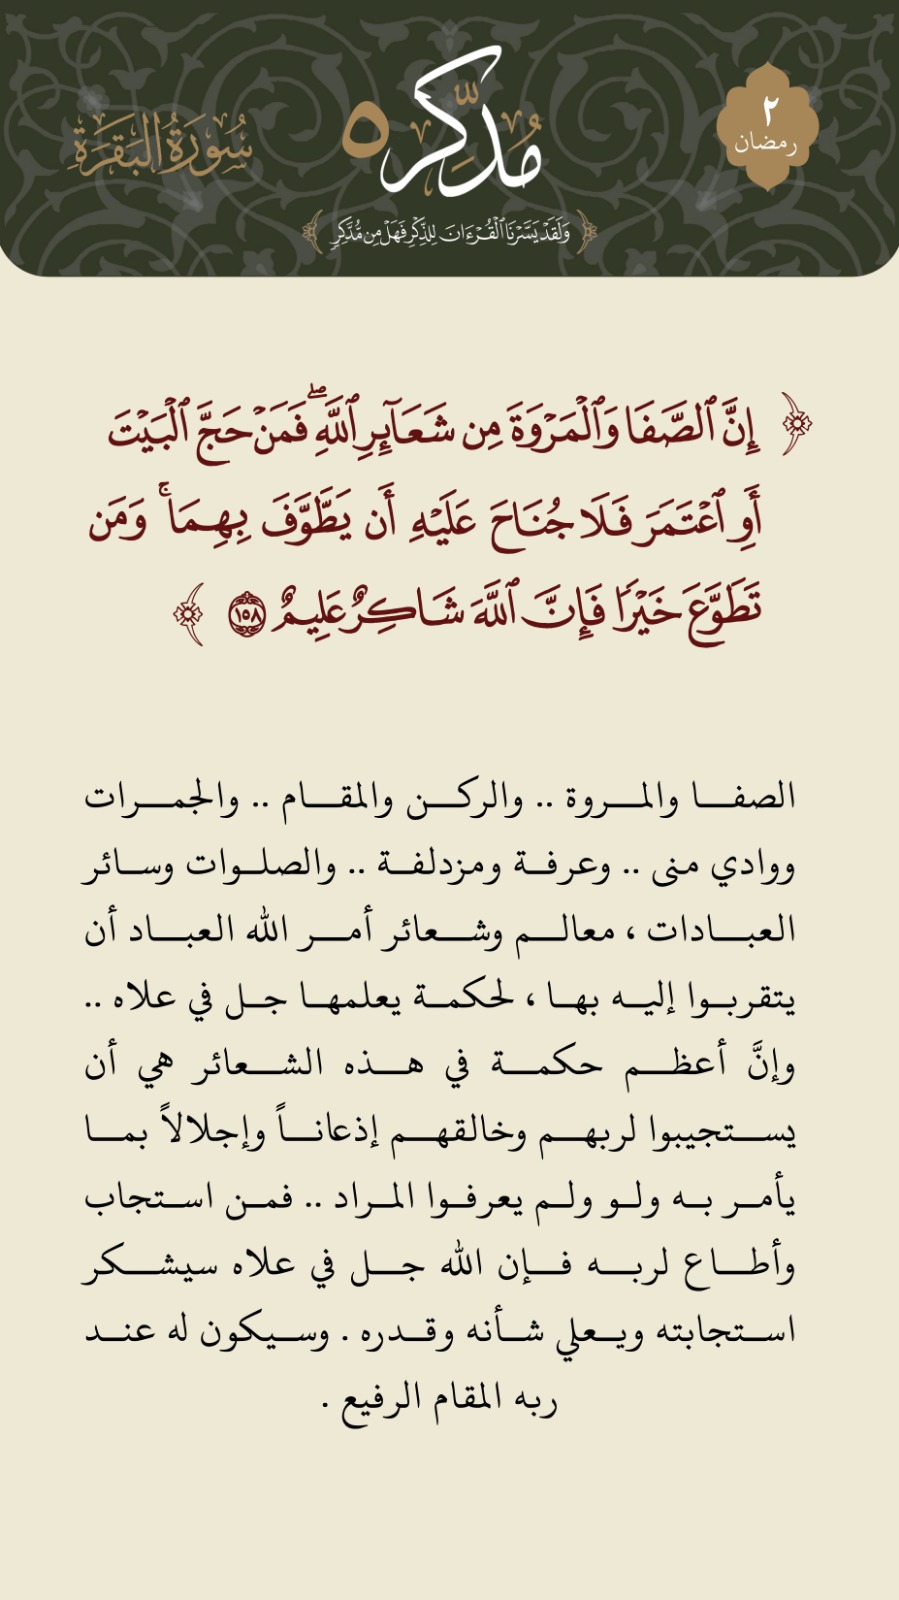 ٢
رمضان
مدّكر ٥
سُورَةُ البَقَرَة
وَلَقَدْ يَسَّرْنَا ٱلْقُرْءَانَ لِلذِّكْرِ فَهَلْ مِن مُّدَّكِرٍ
﴿ إِنَّ ٱلصَّفَا وَٱلْمَرْوَةَ مِن شَعَآئِرِ ٱللَّهِ ۖ فَمَنْ حَجَّ ٱلْبَيْتَ
أَوِ ٱعْتَمَرَ فَلَا جُنَاحَ عَلَيْهِ أَن يَطَّوَّفَ بِهِمَا ۚ وَمَن
تَطَوَّعَ خَيْرًا فَإِنَّ ٱللَّهَ شَاكِرٌ عَلِيمٌ ١٥٨ ﴾
الصفا والمروة .. والركن والمقام .. والجمرات
ووادي منى .. وعرفة ومزدلفة .. والصلوات وسائر
العبادات ، معالم وشعائر أمر الله العباد أن
يتقربوا إليه بها ، لحكمة يعلمها جل في علاه ..
وإنَّ أعظم حكمة في هذه الشعائر هي أن
يستجيبوا لربهم وخالقهم إذعاناً وإجلالاً بما
يأمر به ولو ولم يعرفوا المراد .. فمن استجاب
وأطاع لربه فإن الله جل في علاه سيشكر
استجابته ويعلي شأنه وقدره . وسيكون له عند
ربه المقام الرفيع .